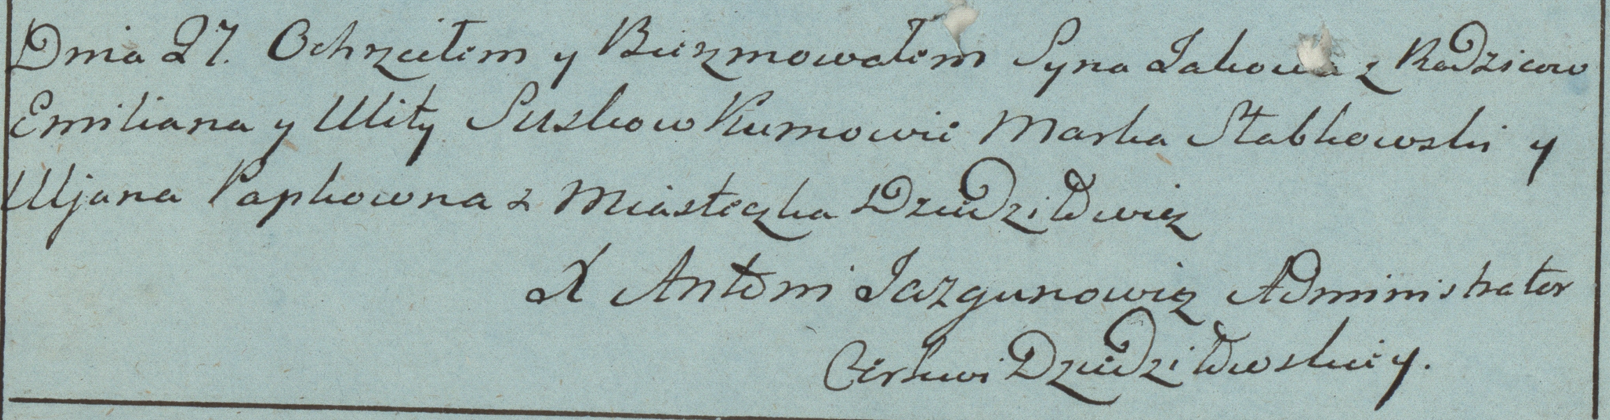 Dnia 27. Ochrzciłem y Bierzmowałem Syna Jakowa z Rodzicow
Emiliana y Ulity Suszkow Kumowie Marka Stabkowski y
Uljana Papkowna z Miasteczka Dziedziłowicz
X Antoni Jazgunowicz Administrator
Cerkwi Dziedziłowskiey.